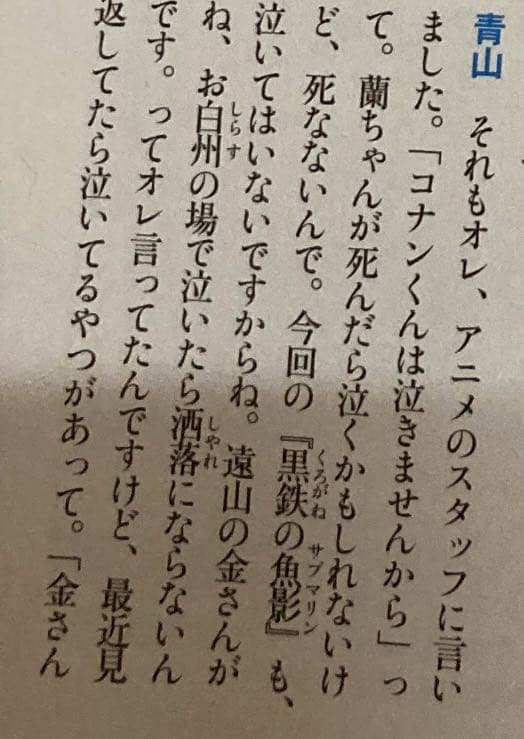 青山 それもオレ、アニメのスタッフに言い
ました。「コナンくんは泣きませんから」っ
て。蘭ちゃんが死んだら泣くかもしれないけ
ど、死なないんで。今回の『黒鉄の魚影』も、
くろがね サブマリン
泣いてはいないですからね。遠山の金さんが
ね、お白州の場で泣いたら洒落にならないん
しらす しゃれ
です。ってオレ言ってたんですけど、最近見
返してたら泣いてるやつがあって。「金さん